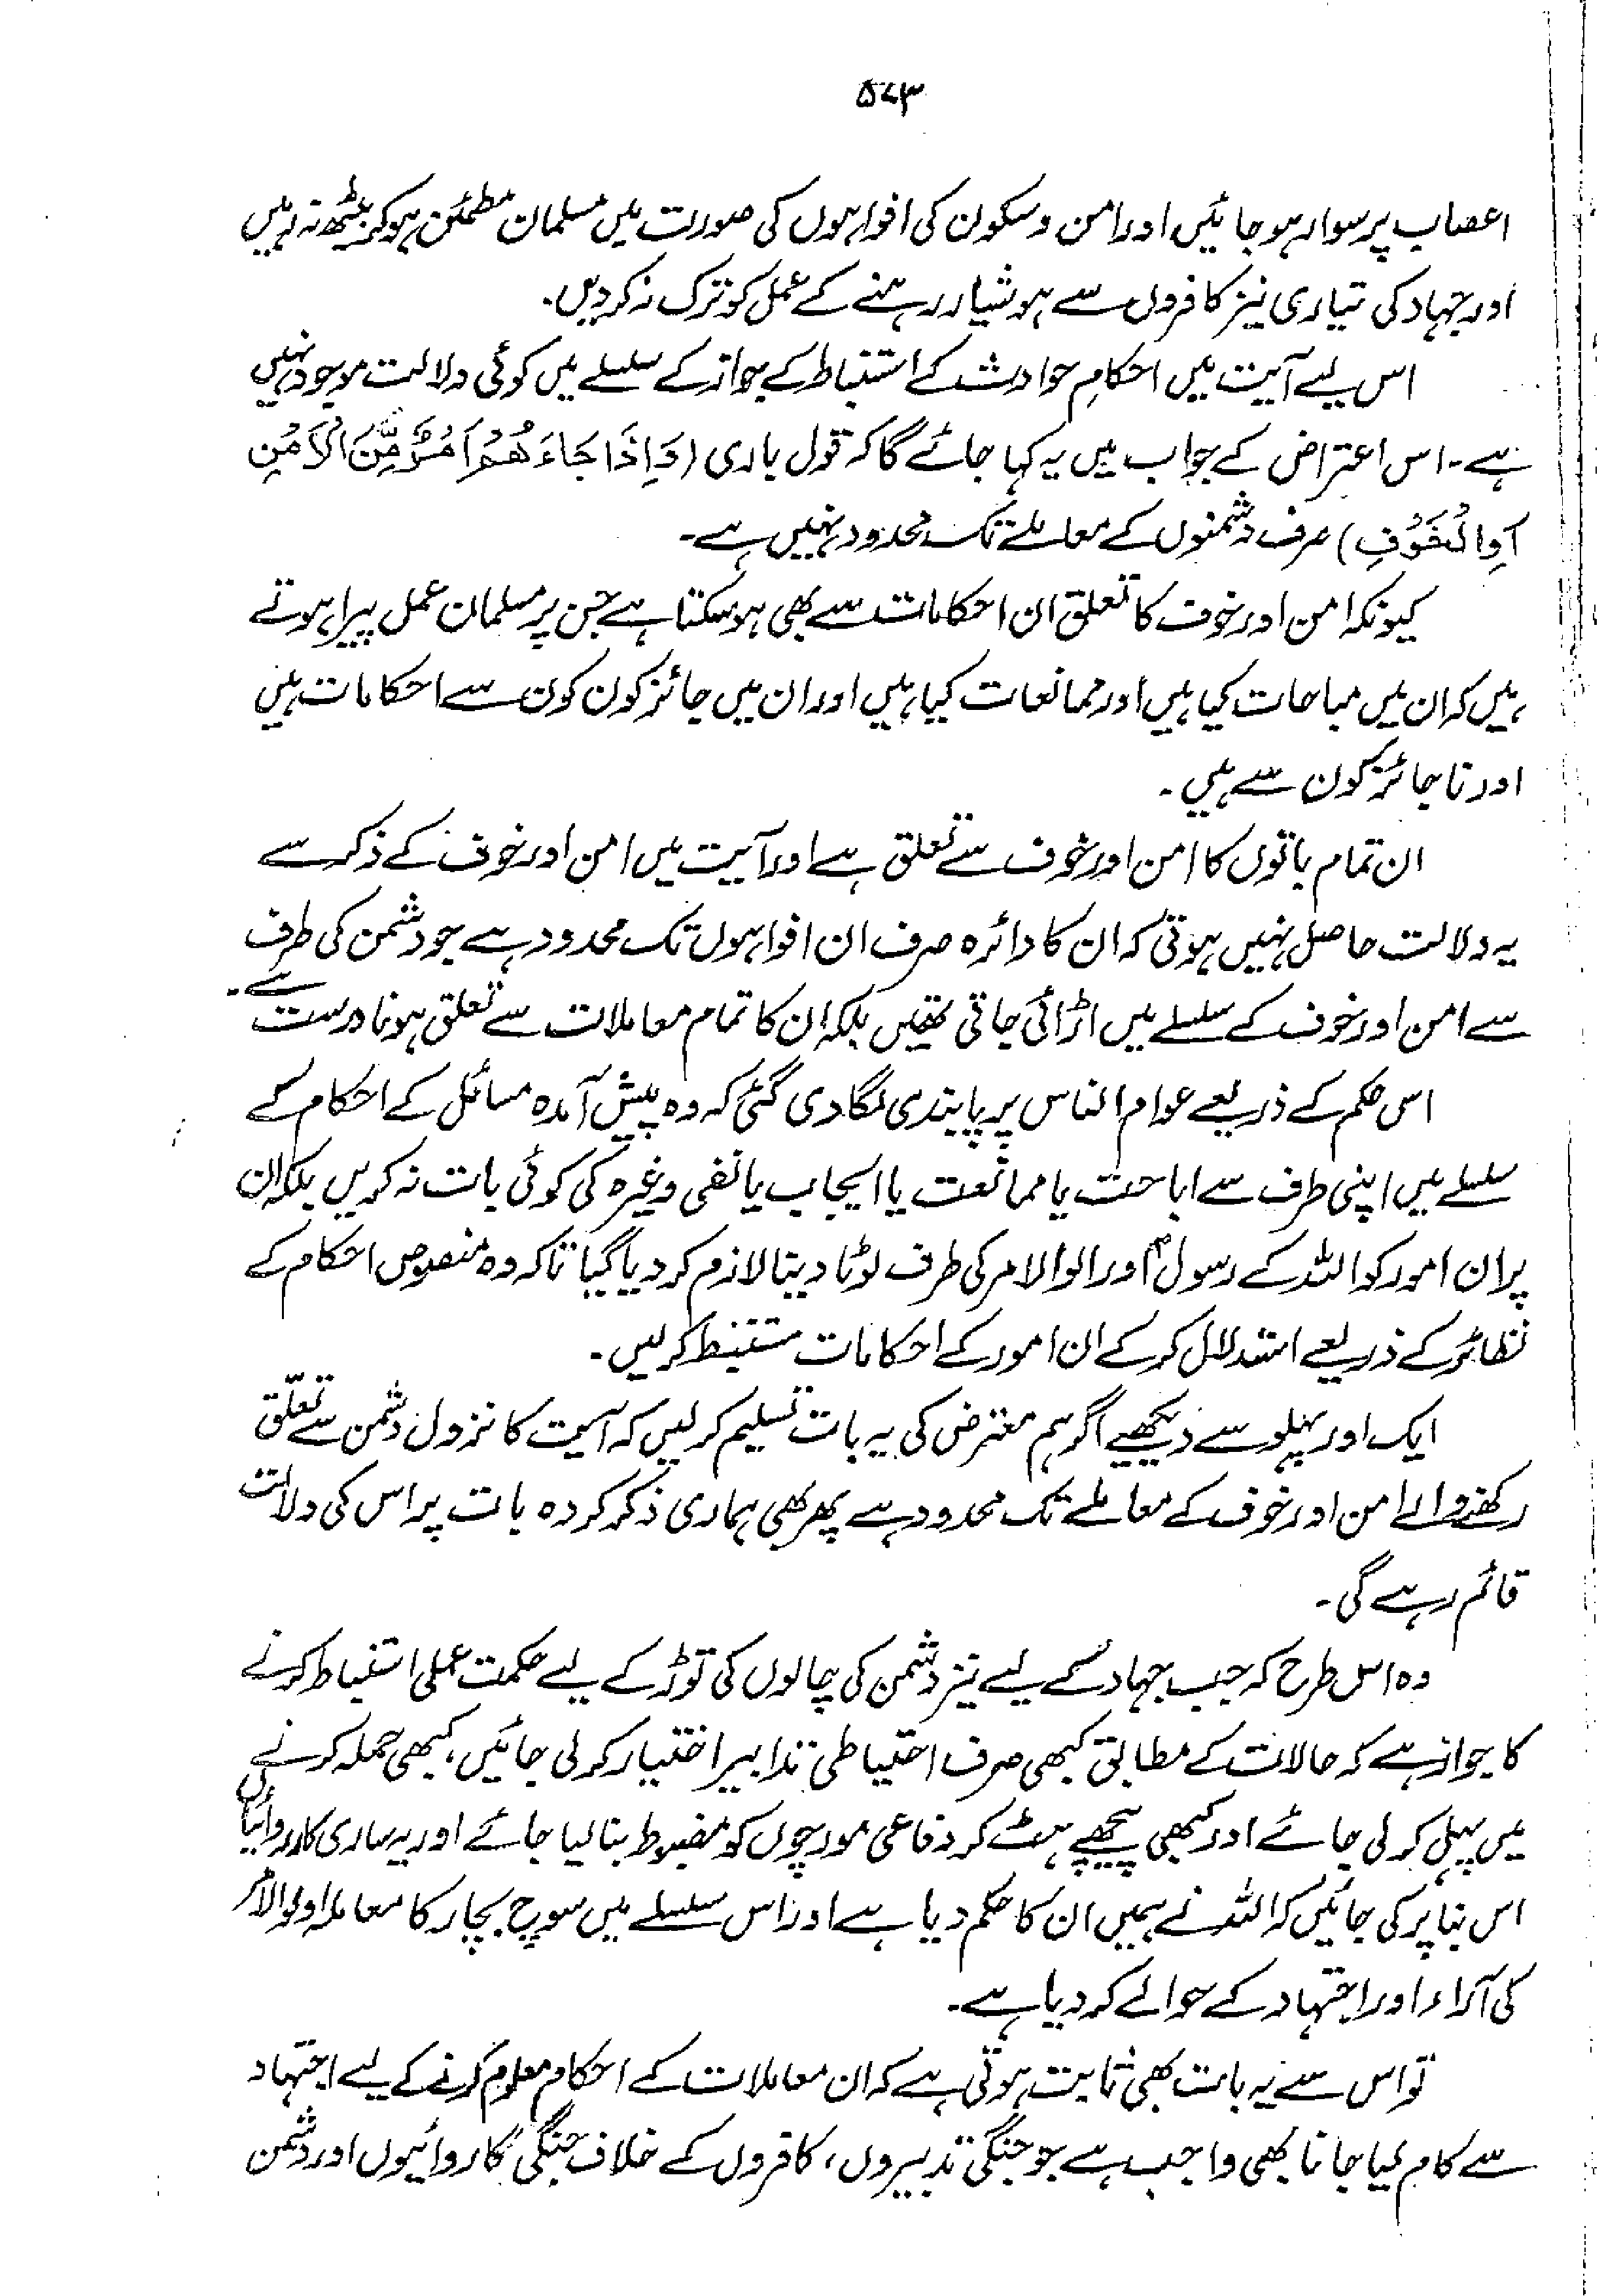 ۵۷۳
اعصاب پر سوار ہو جائیں اور امن و سکون کی افواہوں کی صورت میں مسلمان مطمئن ہو کر بیٹھ نہ رہیں
اور جہاد کی تیاری نیز کافروں سے ہوشیار رہنے کے عمل کو ترک نہ کر دیں۔
اس لیے آیت میں احکامِ حوادث کے استنباط کے جواز کے سلسلے میں کوئی دلالت موجود نہیں
ہے۔ اس اعتراض کے جواب میں یہ کہا جائے گا کہ قول باری (وَاِذَا جَاءَھُمْ اَمْرٌ مِّنَ الْاَمْنِ
اَوِ الْخَوْفِ) صرف دشمنوں کے معاملے تک محدود نہیں ہے۔
کیونکہ امن اور خوف کا تعلق ان احکامات سے بھی ہو سکتا ہے جن پر مسلمان عمل پیرا ہوتے
ہیں کہ ان میں مباحات کیا ہیں اور ممانعات کیا ہیں اور ان میں جائز کون کون سے احکامات ہیں
اور ناجائز کون سے ہیں۔
ان تمام باتوں کا امن اور خوف سے تعلق ہے اور آیت میں امن اور خوف کے ذکر سے
یہ دلالت حاصل نہیں ہوتی کہ ان کا دائرہ صرف ان افواہوں تک محدود ہے جو دشمن کی طرف
سے امن اور خوف کے سلسلے میں اڑائی جاتی تھیں بلکہ ان کا تمام معاملات سے تعلق ہونا درست ہے۔
اس حکم کے ذریعے عوام الناس پر پابندی لگا دی گئی کہ وہ پیش آمدہ مسائل کے احکام کے
سلسلے میں اپنی طرف سے اباحت یا ممانعت یا ایجاب یا نفی وغیرہ کی کوئی بات نہ کریں بلکہ ان
پر ان امور کو اللہ کے رسولؐ اور الوالامر کی طرف لوٹا دینا لازم کر دیا گیا تاکہ وہ منصوص احکام کے
نظائر کے ذریعے استدلال کر کے ان امور کے احکامات مستنبط کر لیں۔
ایک اور پہلو سے دیکھیے اگر ہم معترض کی یہ بات تسلیم کر لیں کہ آیت کا نزول دشمن سے تعلّق
رکھنے والے امن اور خوف کے معاملے تک محدود ہے پھر بھی ہماری ذکر کردہ بات پر اس کی دلالت
قائم رہے گی۔
وہ اس طرح کہ جب جہاد کے لیے نیز دشمن کی چالوں کی توڑ کے لیے حکمت عملی استنباط کرنے
کا جواز ہے کہ حالات کے مطابق کبھی صرف احتیاطی تدابیر اختیار کر لی جائیں، کبھی حملہ کرنے
میں پہل کر لی جائے اور کبھی پیچھے ہٹ کر دفاعی مورچوں کو مضبوط بنا لیا جائے اور یہ ساری کارروائیاں
اس بنا پر کی جائیں کہ اللہ نے ہمیں ان کا حکم دیا ہے اور اس سلسلے میں سوچ بچار کا معاملہ اولوالامر
کی آراء اور اجتہاد کے حوالے کر دیا ہے۔
تو اس سے یہ بات بھی ثابت ہوتی ہے کہ ان معاملات کے احکام معلوم کرنے کے لیے اجتہاد
سے کام لیا جانا بھی واجب ہے جو جنگی تدبیروں، کافروں کے خلاف جنگی کاروائیوں اور دشمن